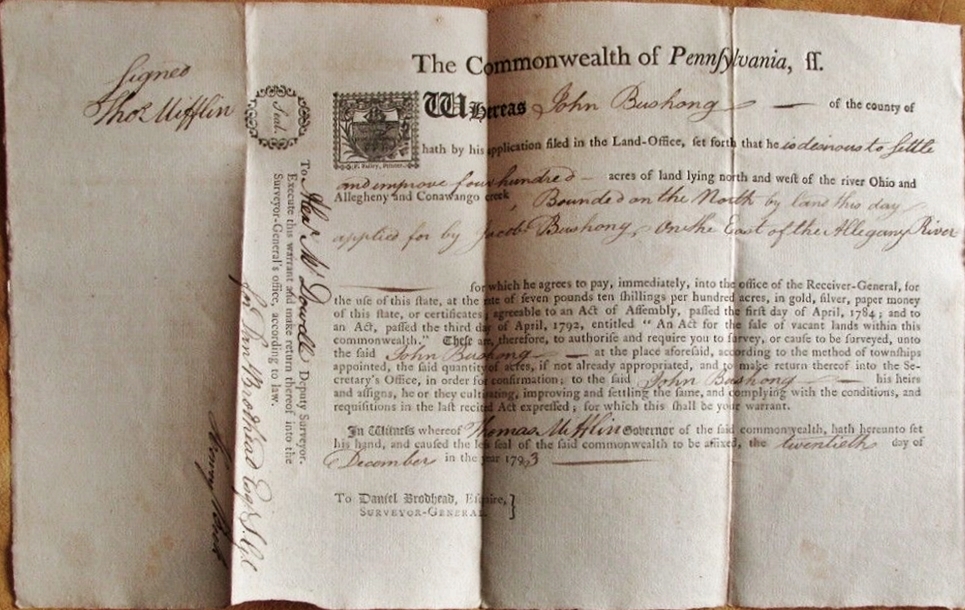 Signed
Thos Mifflin
Seal.
To Alexr McDowell Deputy Surveyor.
Execute this warrant and make return thereof into the
Surveyor-General's office, according to law.
for Danl Brodhead Esqr S. G.
The Commonwealth of Pennsylvania, ss.
WHereas John Bushong — of the county of
hath by his application filed in the Land-Office, set forth that he is desirous to settle
and improve four hundred — acres of land lying north and west of the river Ohio and
Allegheny and Conawango creek, Bounded on the North by land this day
applied for by Jacob Bushong, On the East of the Allegany River
for which he agrees to pay, immediately, into the office of the Receiver-General, for
the use of this state, at the rate of seven pounds ten shillings per hundred acres, in gold, silver, paper money
of this state, or certificates, agreeable to an Act of Assembly, passed the first day of April, 1784; and to
an Act, passed the third day of April, 1792, entitled "An Act for the sale of vacant lands within this
commonwealth." These are, therefore, to authorise and require you to survey, or cause to be surveyed, unto
the said John Bushong — at the place aforesaid, according to the method of townships
appointed, the said quantity of acres, if not already appropriated, and to make return thereof into the Se-
cretary's Office, in order for confirmation; to the said John Bushong — his heirs
and assigns, he or they cultivating, improving and settling the same, and complying with the conditions, and
requisitions in the last recited Act expressed; for which this shall be your warrant.
In Witness whereof Thomas Mifflin Governor of the said commonwealth, hath hereunto set
his hand, and caused the less seal of the said commonwealth to be affixed, the twentieth day of
December in the year 1793
To Daniel Brodhead, Esquire,
Surveyor-General.